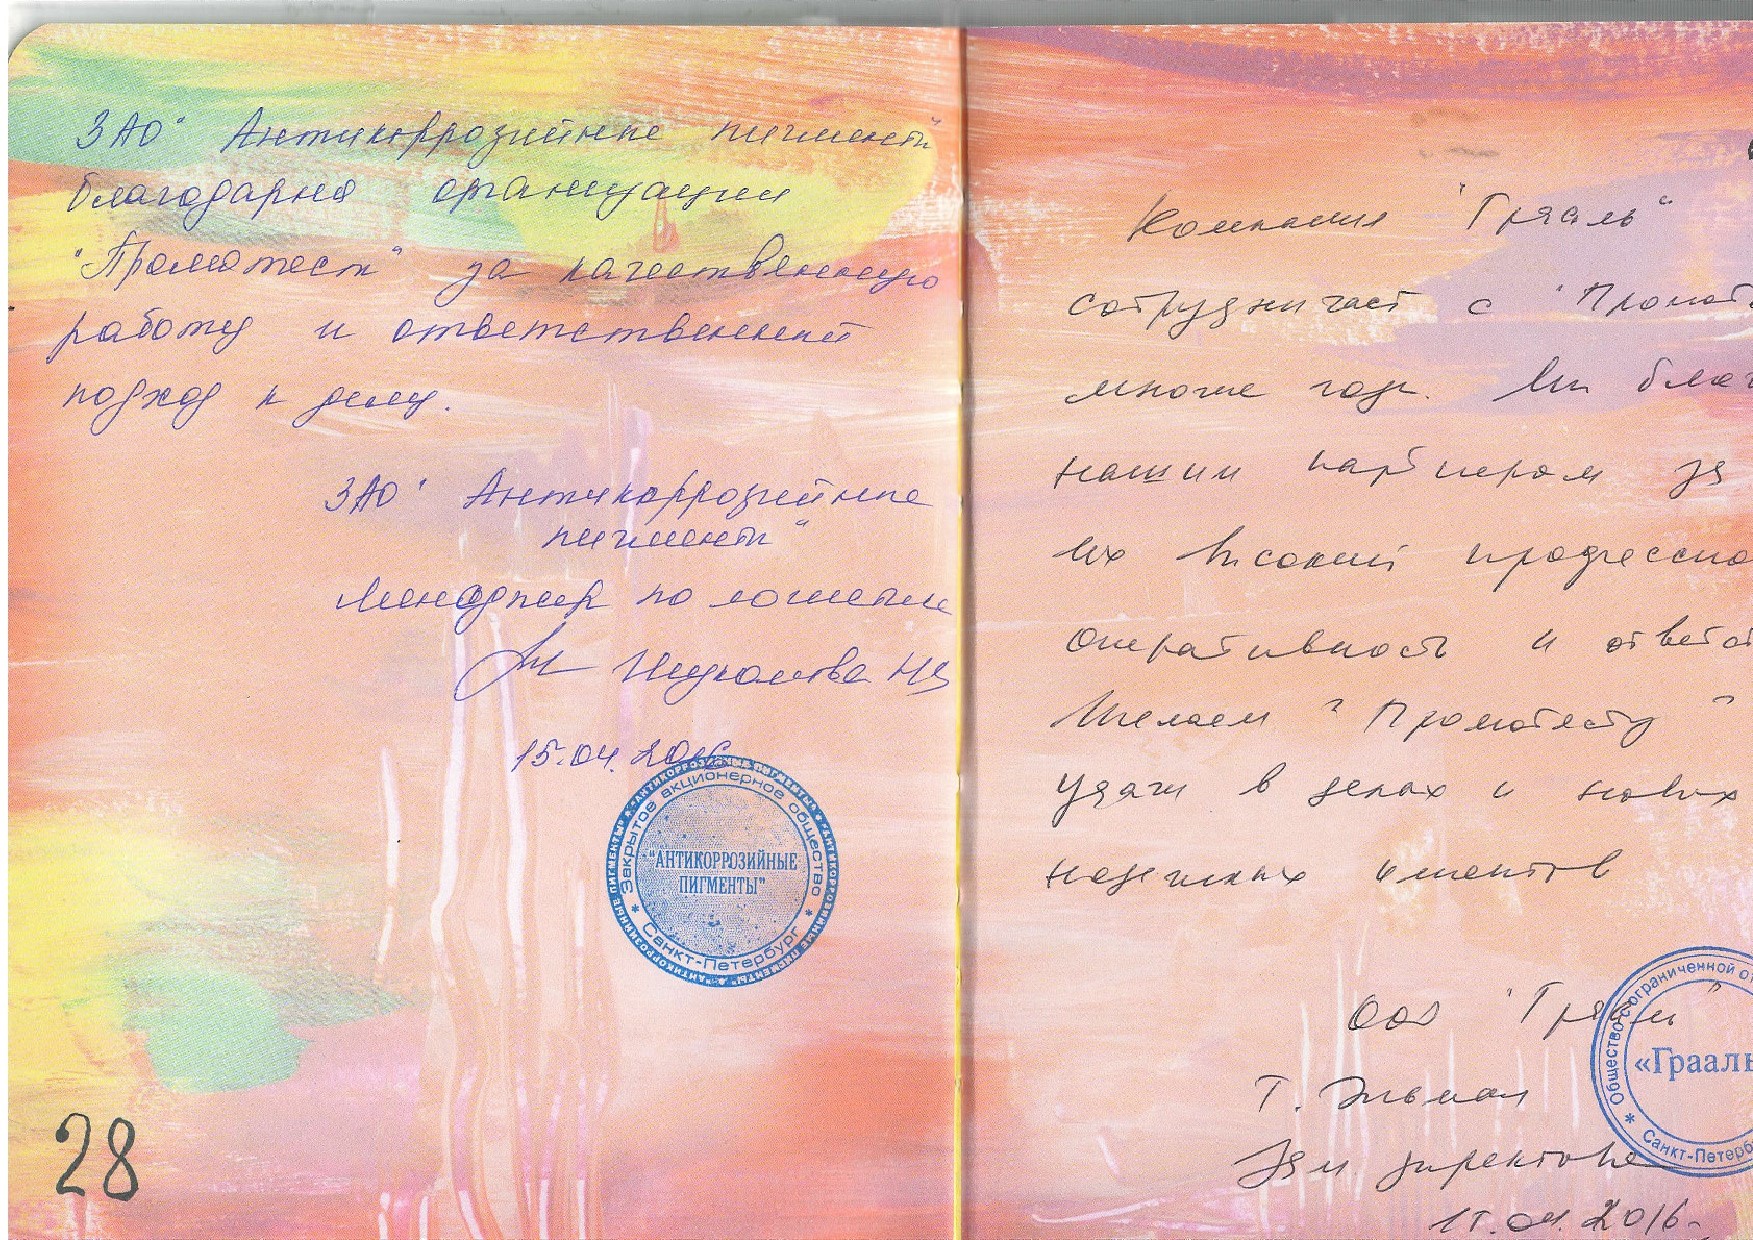 ЗАО "Антикоррозийные пигменты"
благодарна организации
"Прамотест" за качественную
работу и ответственный
подход к делу.
ЗАО "Антикоррозийные
пигменты"
Менеджер по логистике
15.04.2016
"АНТИКОРРОЗИЙНЫЕ
ПИГМЕНТЫ"
Закрытое акционерное общество
* Санкт-Петербург *
28
Компания "Грааль"
сотрудничает с "Промот
многие годы. Мы благ
нашим партнерам за
их высокий профессио
оперативность и ответст
Желаем "Промотесту"
удачи в делах и новых
надежных клиентов
ООО "Грааль"
Т. Эльман
Зам директора
15.04.2016
Общество с ограниченной от
«Грааль
* Санкт-Петерб